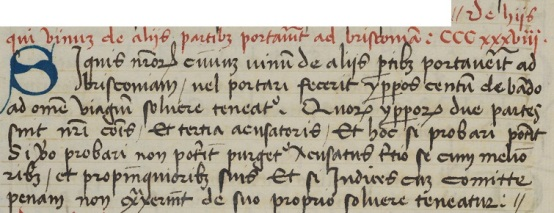 // De hiis
qui vinuz de alijs partibz portaūt ad brisconiā : CCCxxxviij :
Siquis nr̄oꝝ ciuiuz uinū de alijs ꝑtibz portaueīt ad
brisconiam / uel portari fecerit yꝑpos centū de bādo
ad om̄e viagiuz soluere teneatᵘ . Quoꝝ yꝑpoꝝ due partes
sint nr̄i cōis / Et tertia acusatoris / Et hoc si probari pot̄it
Si v̊o probari non pot̄it purget᷑ Acusatus se cum melio
ribz / et propinquioribz suis Et si Iudices cuz Comitte
penam non exixerint de suo proprio soluere teneatur : //